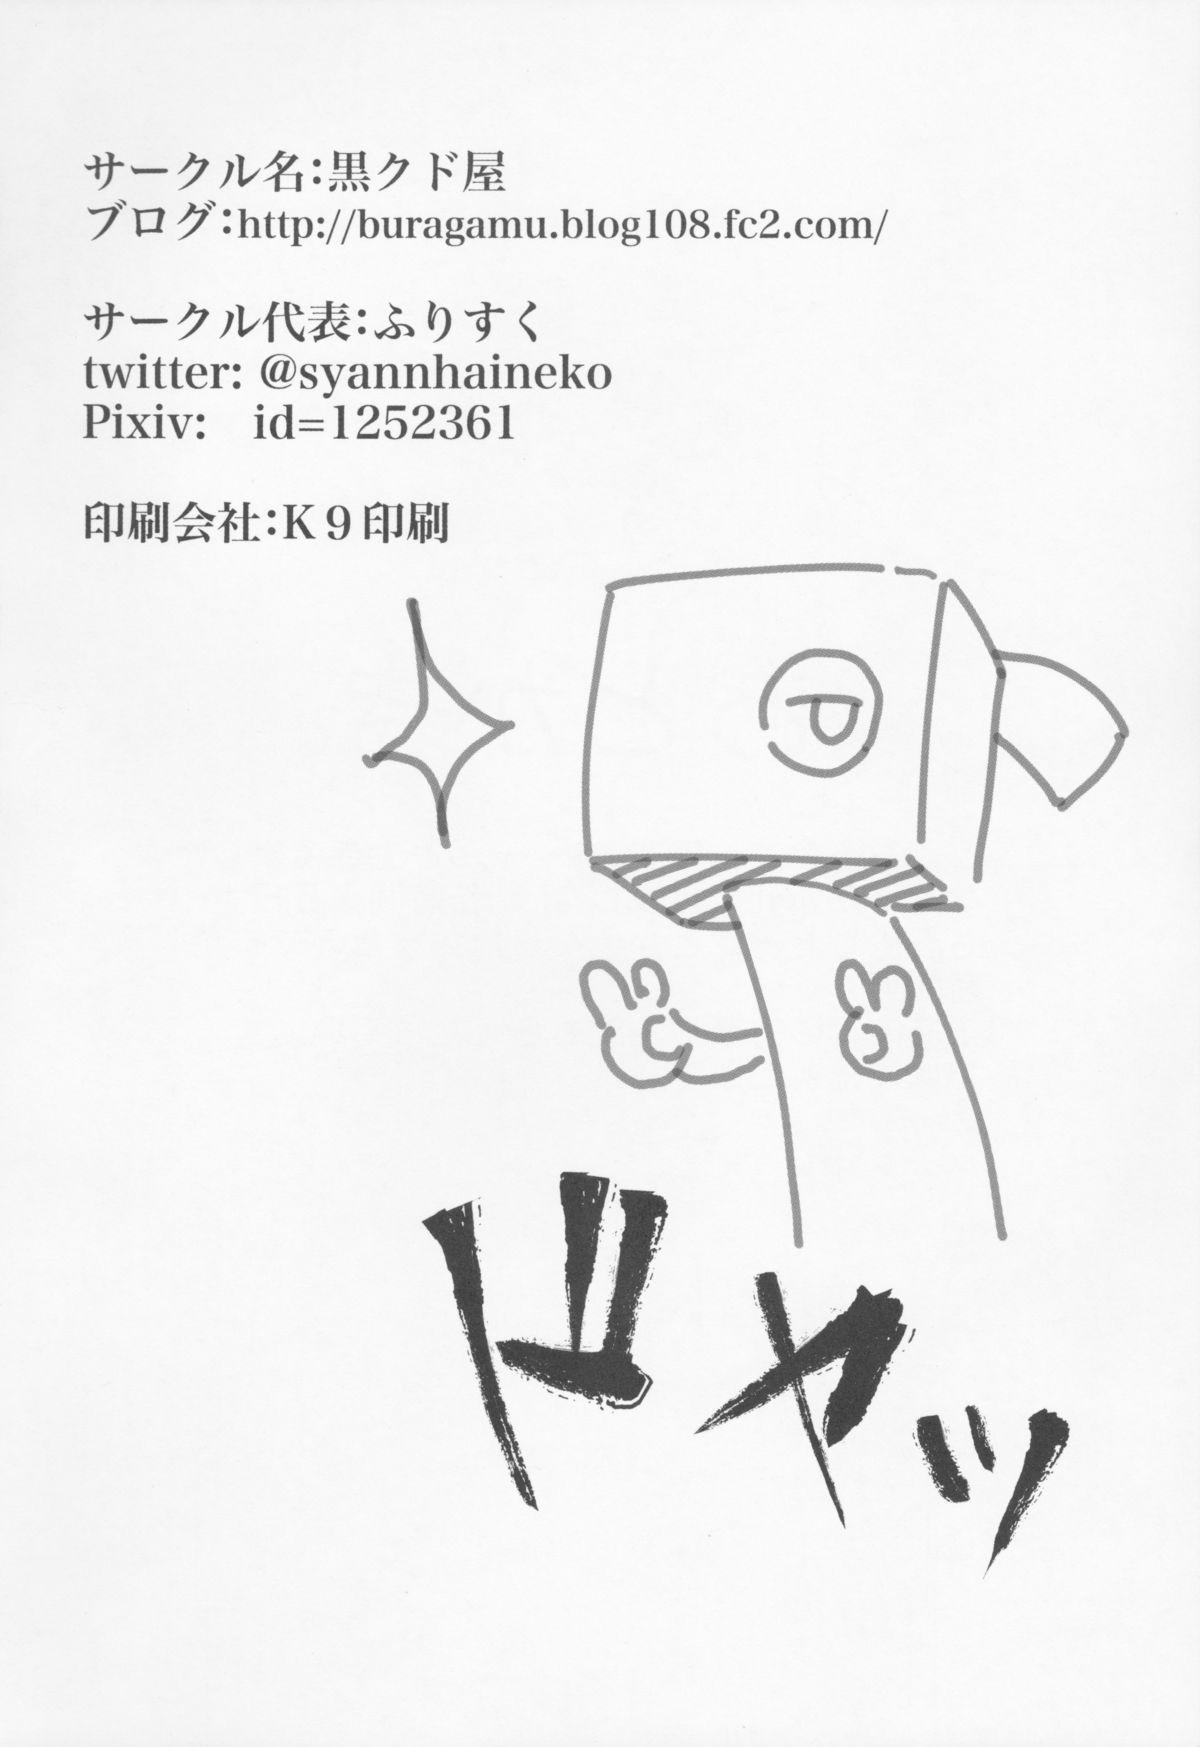 サークル名：黒クド屋
ブログ：http://buragamu.blog108.fc2.com/
サークル代表：ふりすく
twitter: @syannhaineko
Pixiv:　id=1252361
印刷会社：K９印刷
ドヤッ